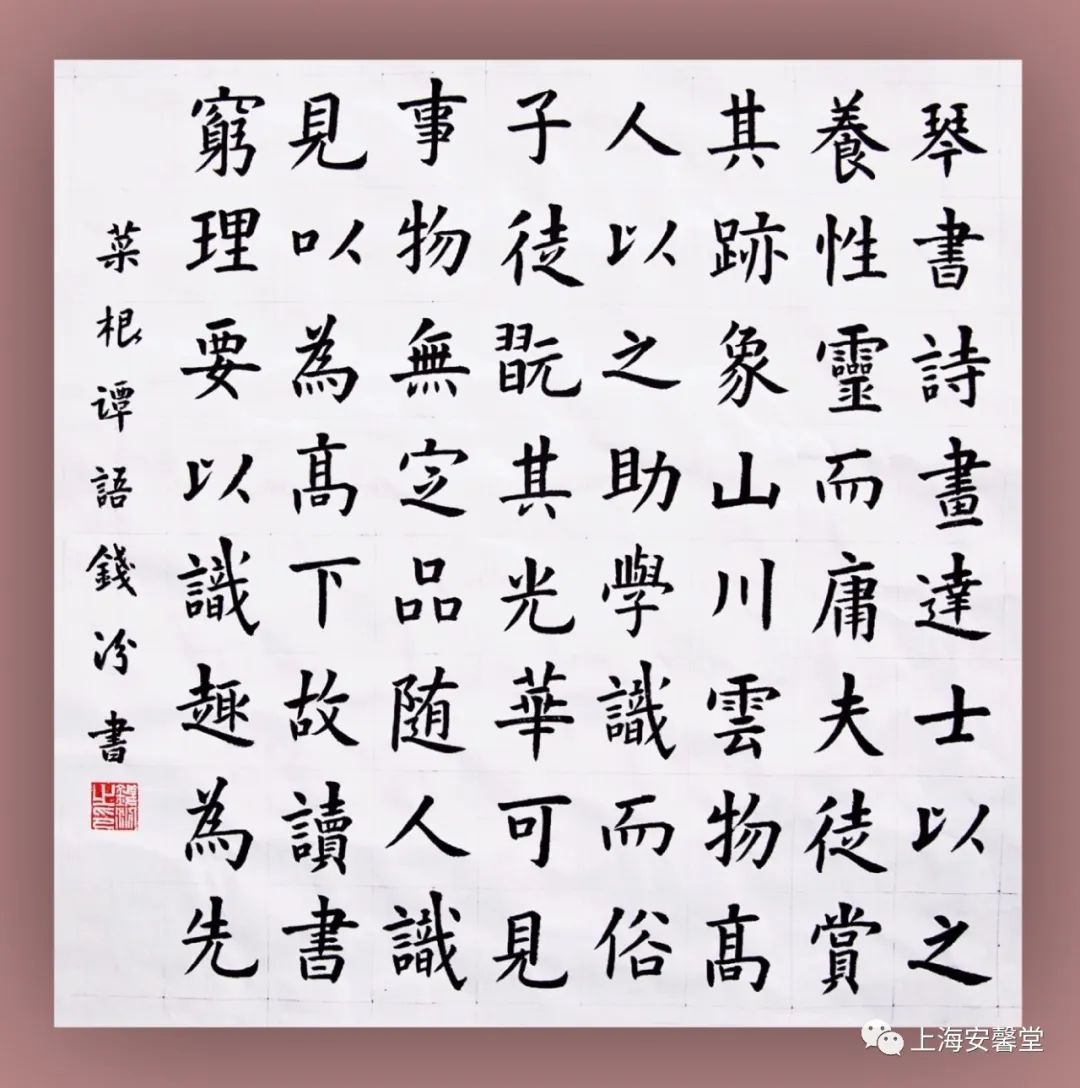 琴書詩畫達士以之
養性靈而庸夫徒賞
其跡象山川雲物高
人以之助學識而俗
子徒翫其光華可見
事物無定品随人識
見以為高下故讀書
窮理要以識趣為先
菜根谭語錢汾書
上海安馨堂